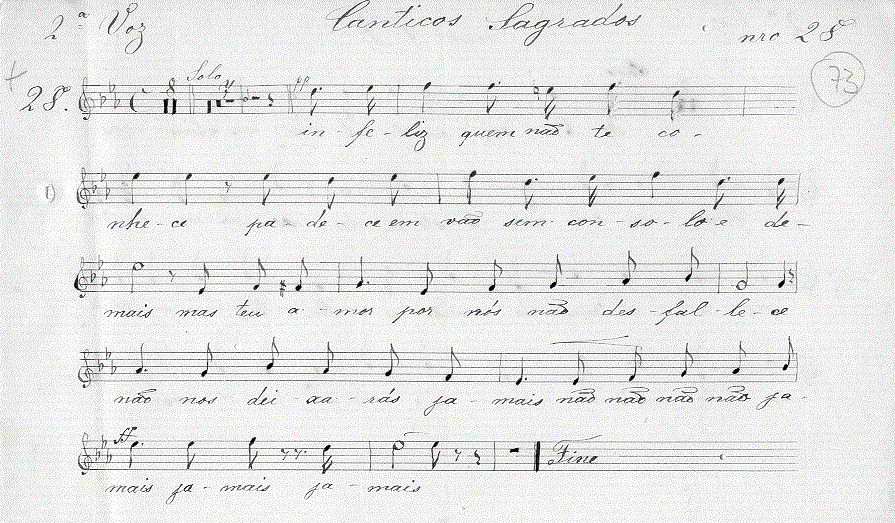 2ª Voz Canticos Sagrados nro 28
73
28. 8 Solo
in-fe-liz quem não te co-
nhe-ce pa-de-ce em vão sem con-so-lo e de-
mais mas teu a-mor por nós não des-fal-le-ce
não nos dei-xa-rás ja-mais não não não não ja-
ff Fine
mais ja-mais ja-mais